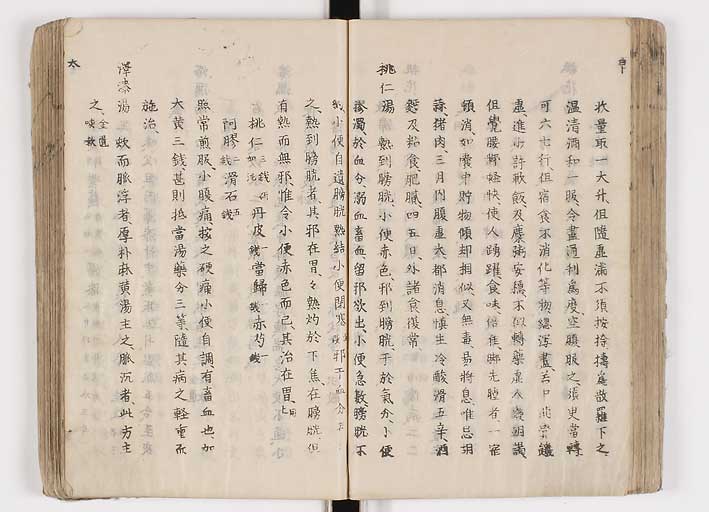 收量取一大升但隨虛滿不須按捺擣為散羅下之
溫清酒和一服令盡通利為度空腹服之須臾當轉
可六七行但宿食不消化等物總瀉盡若中風當鐵
虛進少許軟飯及糜粥安穩不似轉藥虛人幾朝謁
但覺腰腳輕快使人踴躍食味倍進腳先腫者一宿
頓消如囊中貯物傾却相似又無毒易將息惟忌胡
蒜猪肉三月內腹虛大都消息慎生冷酸滑五辛酒
麪及黏食肥膩四五日外諸食復常
桃仁湯 熱到膀胱小便赤色邪到膀胱干於氣分小便
膠濁於血分溺血畜血留邪欲出小便急數膀胱不
約小便自遺膀胱熱結小便閉塞 邪干血分
之熱到膀胱者其邪在胃々熱灼於下焦在膀胱但
有熱而無邪惟令小便赤色而已其治在胃
桃仁三錢研如泥 丹皮一錢 當歸一錢 赤芍一錢
阿膠二錢 滑石二錢
照常煎服小腹痛按之硬痛小便自調有畜血也加
大黃三錢甚則抵當湯藥分三等隨其病之輕重而
施治
澤漆湯 欬而脈浮者厚朴麻黃湯主之脈沉者此方主
之 金匱 咳嗽